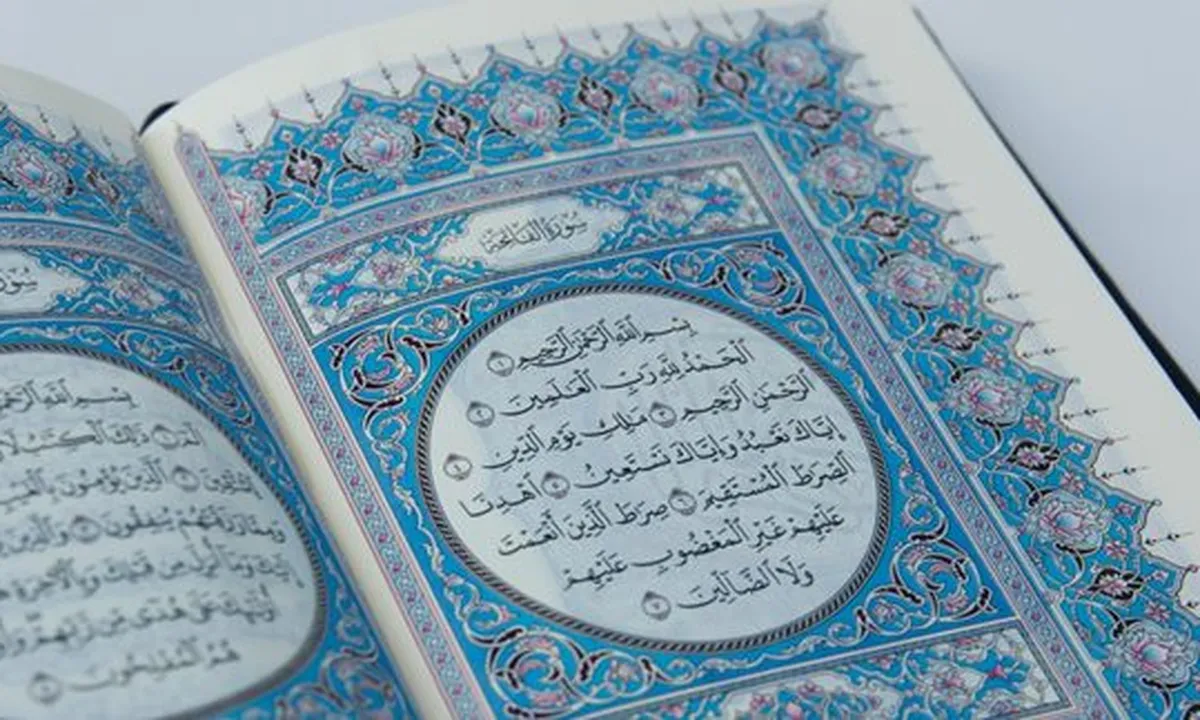 سُورَةُ الفَاتِحَةِ
بِسْمِ ٱللَّهِ ٱلرَّحْمَٰنِ ٱلرَّحِيمِ ١
ٱلْحَمْدُ لِلَّهِ رَبِّ ٱلْعَٰلَمِينَ ٢
ٱلرَّحْمَٰنِ ٱلرَّحِيمِ ٣ مَٰلِكِ يَوْمِ ٱلدِّينِ ٤
إِيَّاكَ نَعْبُدُ وَإِيَّاكَ نَسْتَعِينُ ٥ ٱهْدِنَا
ٱلصِّرَٰطَ ٱلْمُسْتَقِيمَ ٦ صِرَٰطَ ٱلَّذِينَ أَنْعَمْتَ
عَلَيْهِمْ غَيْرِ ٱلْمَغْضُوبِ عَلَيْهِمْ
وَلَا ٱلضَّآلِّينَ ٧
بِسْمِ ٱللَّهِ
الٓمٓ ١ ذَٰلِكَ ٱلْكِتَٰبُ لَا
لِّلْمُتَّقِينَ ٢ ٱلَّذِينَ يُؤْمِنُونَ
وَمِمَّا رَزَقْنَٰهُمْ يُنفِقُونَ ٣ وَٱلَّذِينَ
إِلَيْكَ وَمَآ أُنزِلَ مِن قَبْلِكَ وَبِٱلْءَاخِرَةِ
أُو۟لَٰٓئِكَ عَلَىٰ هُدًى مِّن رَّبِّهِمْ
هُمُ ٱلْمُفْلِحُونَ ٥